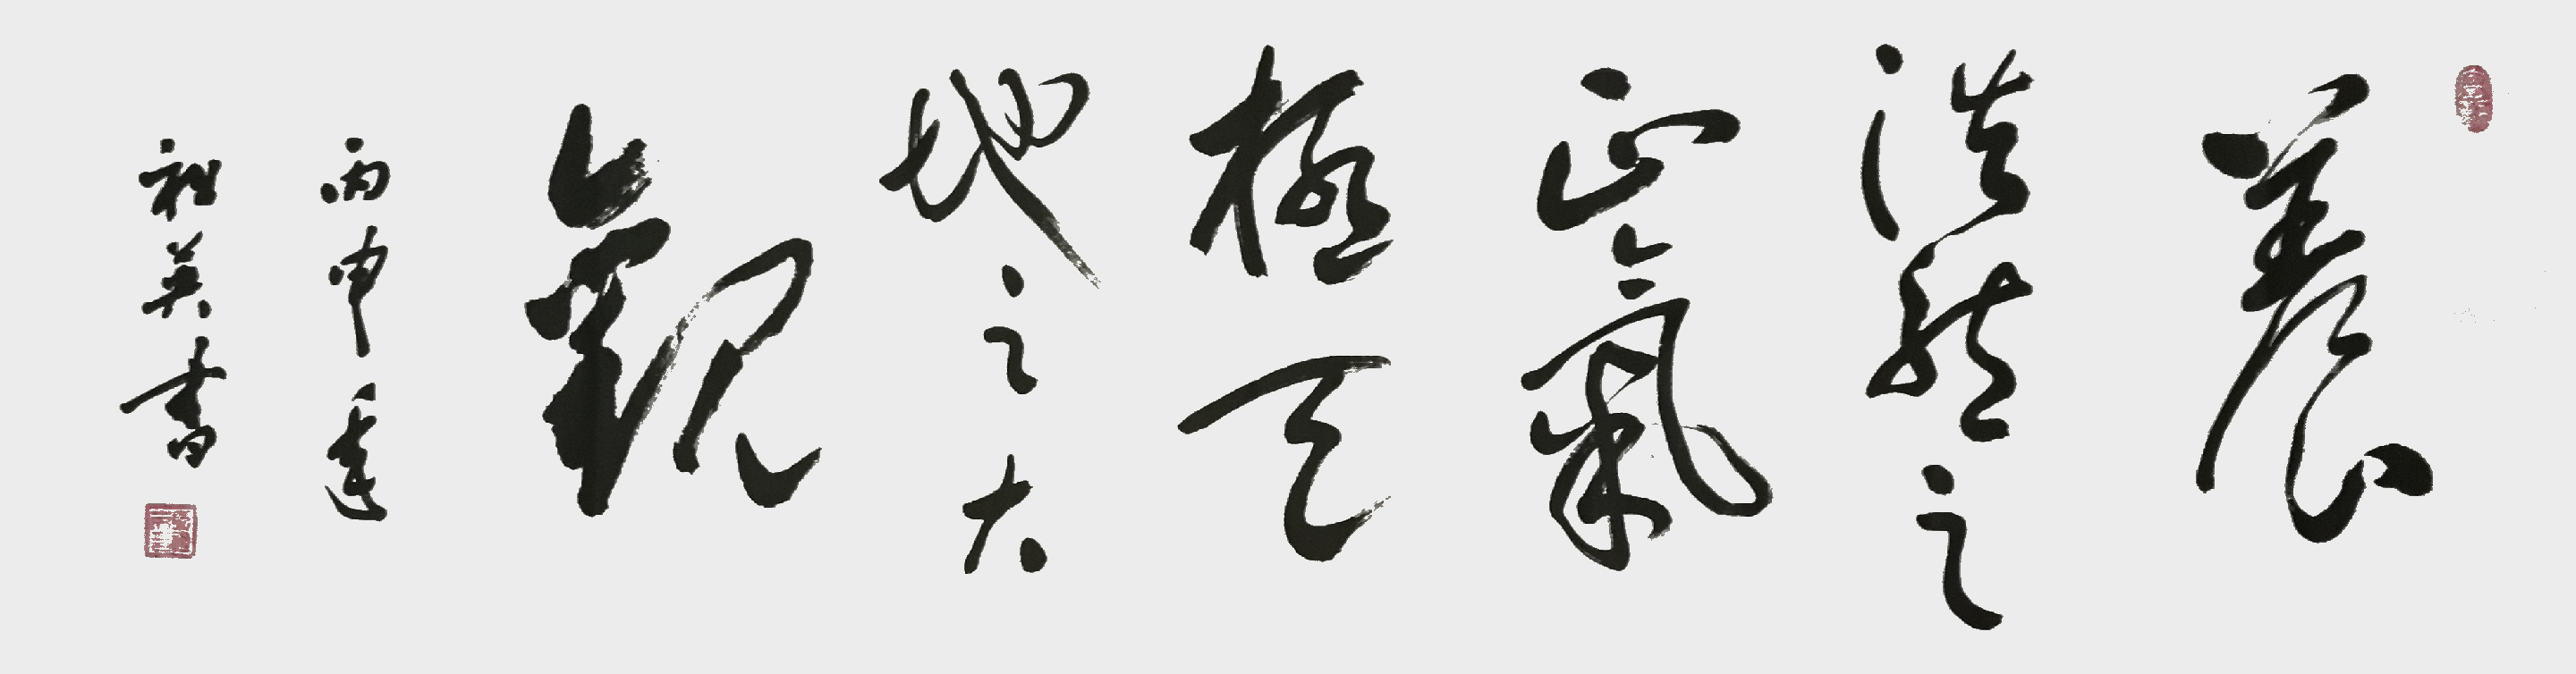 養
浩然之
正氣
極天
地之大
觀
丙申夏
祖英書